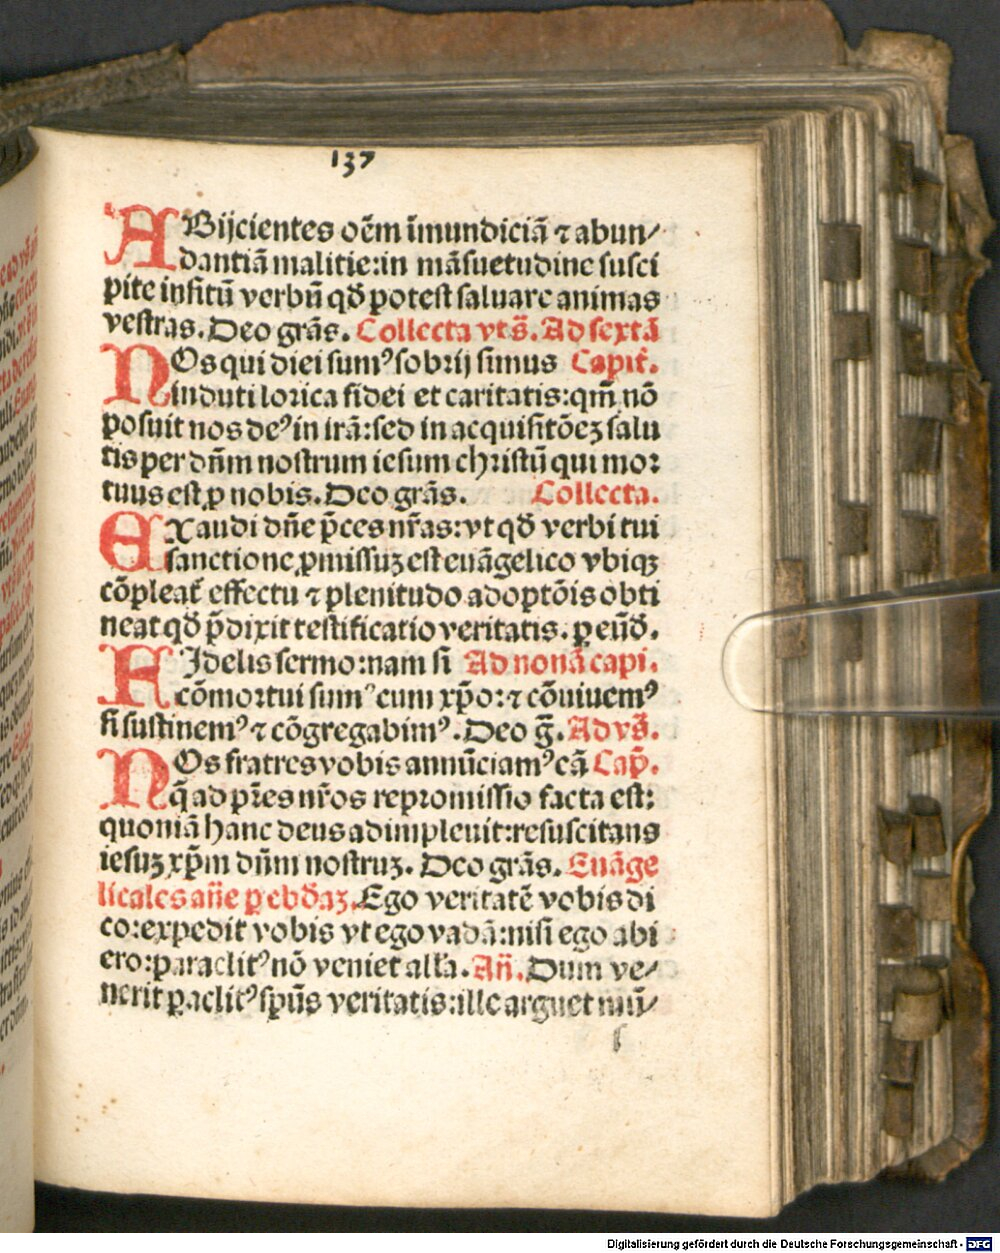 137
ABijcientes oēm īmundiciā ⁊ abun⸗
dantiā malitie:in māsuetudine susci
pite insitū verbū qď potest saluare animas
vestras. Deo grās. Collecta vts̄. Ad sextā
NOs qui diei sumꝰ sobrij simus Capit̄.
induti lorica fidei et caritatis:qm̄ nō
posuit nos deꝰ in irā:sed in acquisitōeꝫ salu
tis per dn̄m nostrum iesum christū qui mor
tuus est ꝓ nobis. Deo grās. Collecta.
EXaudi dn̄e p̄ces nr̄as:vt qď verbi tui
sanctione ꝓmissuꝫ est euāgelico vbiqꝫ
cōpleat̄ effectu ⁊ plenitudo adoptōis obti
neat qď p̄dixit testificatio veritatis. ꝑ eūď.
FIdelis sermo:nam si Ad nonā capi.
cōmortui sumꝰ cum xp̄o:⁊ cōuiuemꝰ
si sustinemꝰ ⁊ cōgregabimꝰ. Deo ḡ. Ad vs̄.
NOs fratres vobis annūciamꝰ eā Cap̄.
q̄ ad pr̄es nr̄os repromissio facta est:
quoniā hanc deus adimpleuit:resuscitans
iesuꝫ xp̄m dn̄m nostruꝫ. Deo grās. Euāge
licales an̄e ꝑ ebďaꝫ. Ego veritatē vobis di
co:expedit vobis vt ego vadā:nisi ego abi
ero:paraclitꝰ nō veniet all̄a. An̄. Dum ve⸗
nerit ꝑaclitꝰ spūs veritatis:ille arguet mū⸗
s
Digitalisierung gefördert durch die Deutsche Forschungsgemeinschaft - DFG